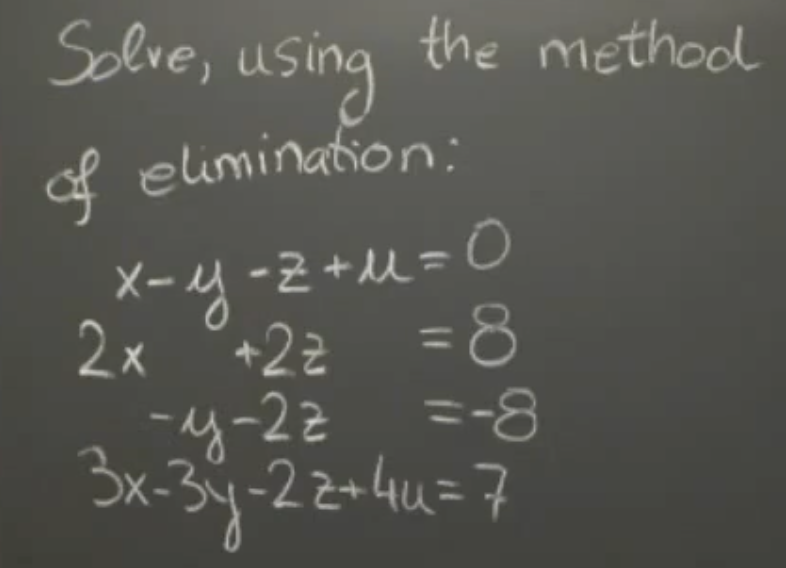 Solve, using the method
of elimination:
x-y-z+u=0
2x +2z =8
-y-2z =-8
3x-3y-2z+4u=7